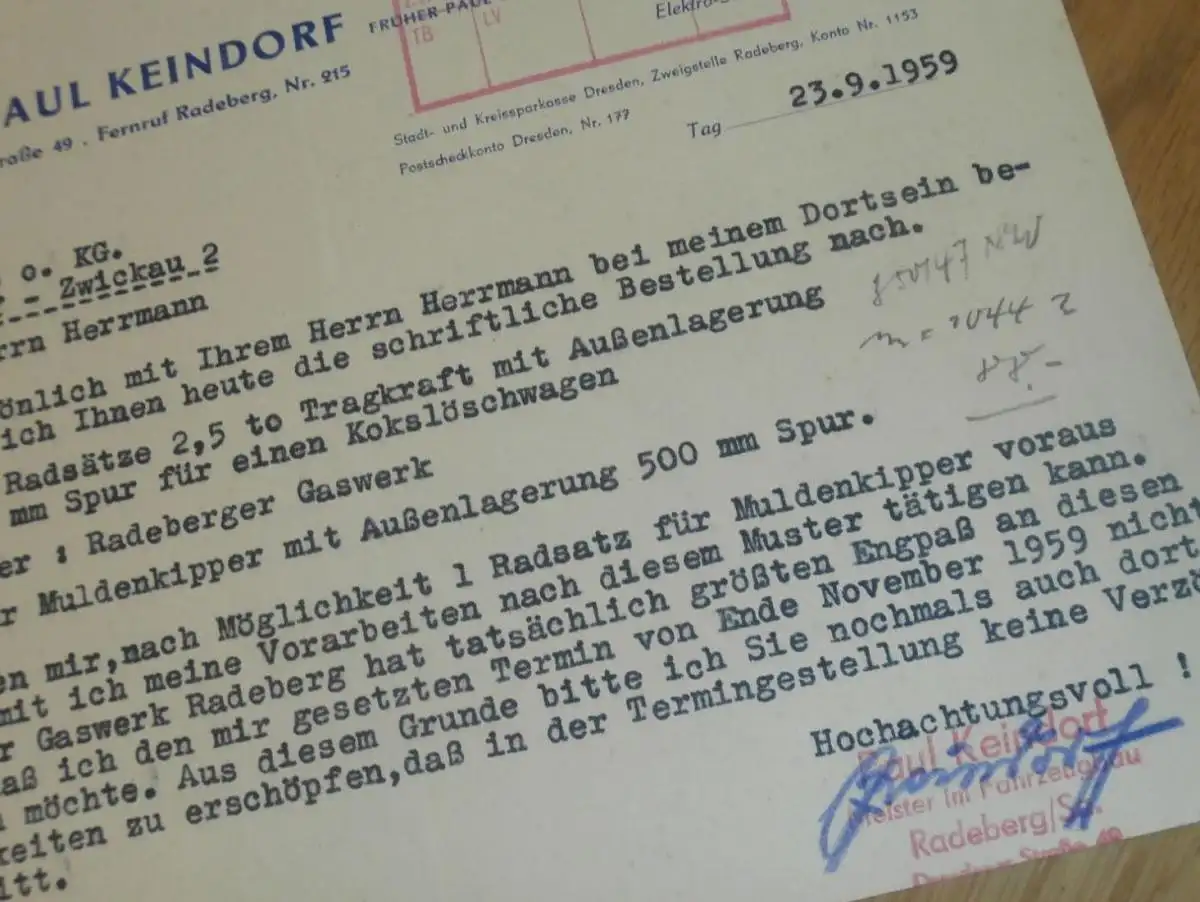 AUL KEINDORF FRÜHER PAUL
raße 49 . Fernruf Radeberg, Nr. 215
TB LV
Elektro-
Stadt- und Kreissparkasse Dresden, Zweigstelle Radeberg, Konto Nr. 1153
Postscheckkonto Dresden, Nr. 177
Tag 23.9.1959
o. KG.
- Zwickau 2
rrn Herrmann
önlich mit Ihrem Herrn Herrmann bei meinem Dortsein be-
ich Ihnen heute die schriftliche Bestellung nach.
Radsätze 2,5 to Tragkraft mit Außenlagerung
mm Spur für einen Kokslöschwagen
er : Radeberger Gaswerk
r Muldenkipper mit Außenlagerung 500 mm Spur.
en mir,nach Möglichkeit 1 Radsatz für Muldenkipper voraus
mit ich meine Vorarbeiten nach diesem Muster tätigen kann.
r Gaswerk Radeberg hat tatsächlich größten Engpaß an diesen
aß ich den mir gesetzten Termin von Ende November 1959 nicht
möchte. Aus diesem Grunde bitte ich Sie nochmals auch dort
keiten zu erschöpfen,daß in der Termingestellung keine Verzö
itt.
Hochachtungsvoll !
Paul Keindorf
Meister im Fahrzeugbau
Radeberg/Sa.
Dresdner Straße 49